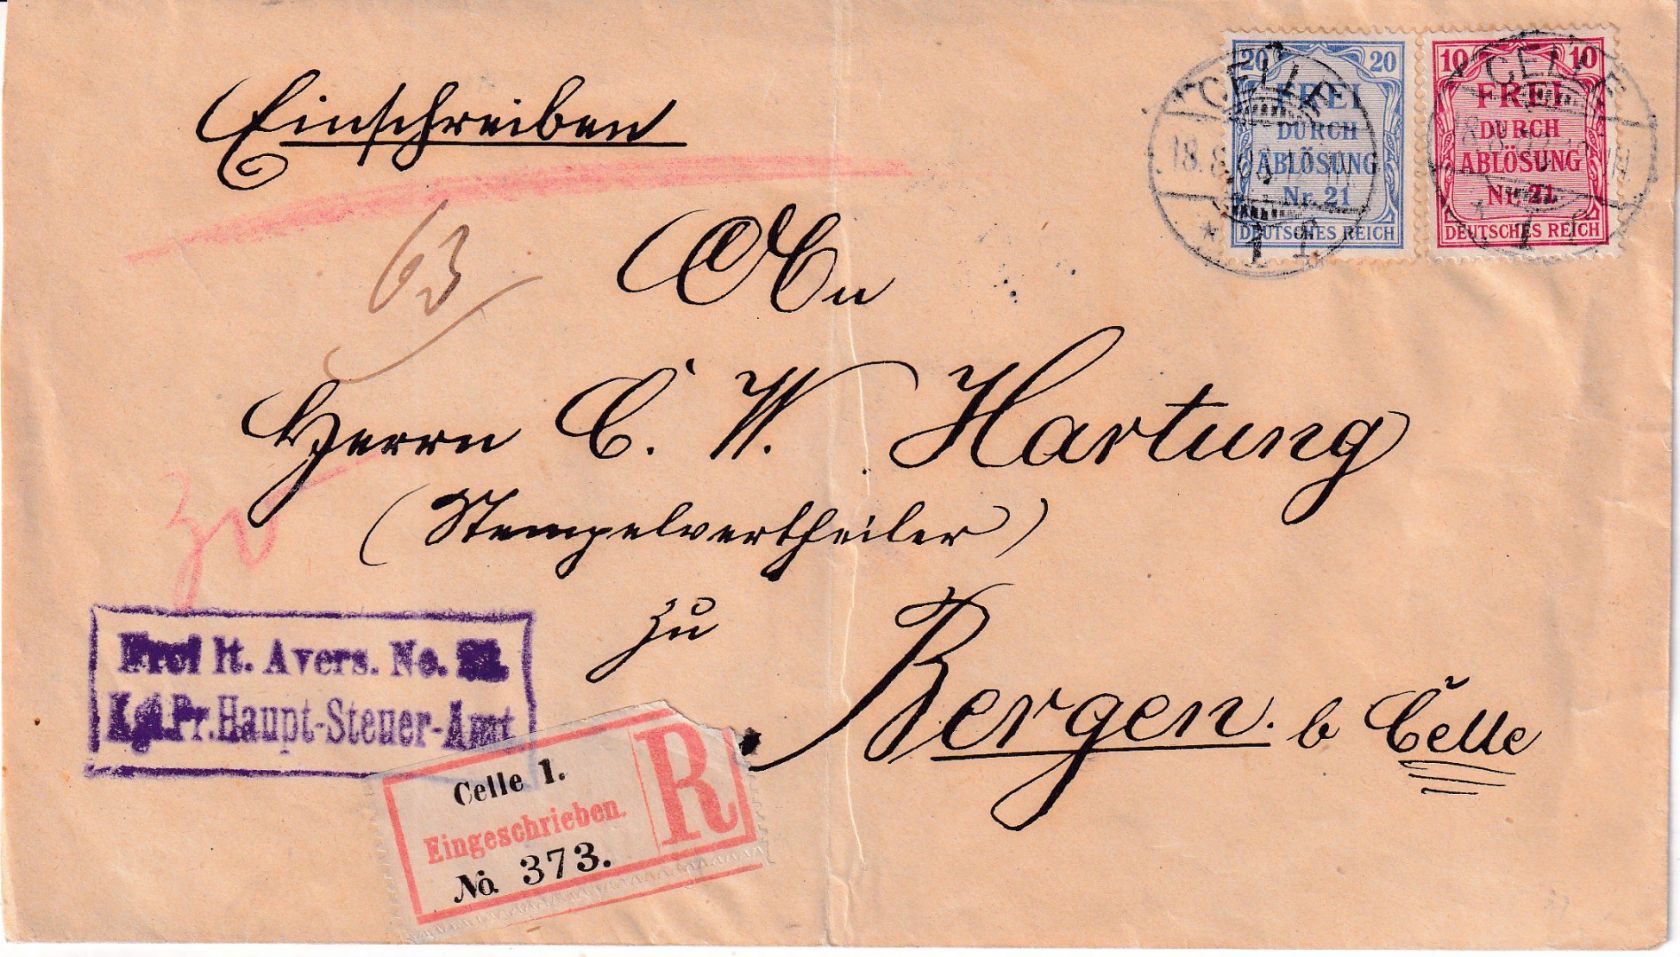 Einschreiben
20 20
FREI
DURCH
ABLÖSUNG
Nr. 21
DEUTSCHES REICH
10 10
FREI
DURCH
ABLÖSUNG
Nr. 21
DEUTSCHES REICH
CELLE
18.8.03
* 1 F
CELLE
18.8.03
* 1 F
63
An
Herrn C. W. Hartung
(Stempelvertheiler)
zu
Bergen. b Celle
Frei lt. Avers. No. 21.
Kgl. Pr. Haupt-Steuer-Amt
Celle 1.
Eingeschrieben.
No. 373.
R